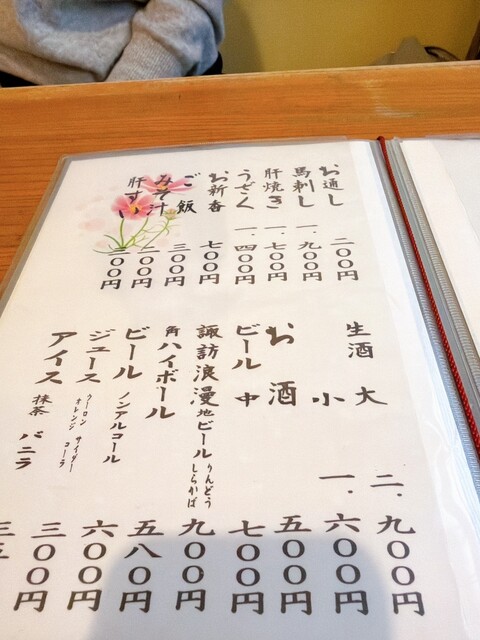 お通し 二〇〇円
馬刺し 一.九〇〇円
肝焼き 一.七〇〇円
うざく 一.四〇〇円
お新香 七〇〇円
ご飯 三〇〇円
みそ汁 二〇〇円
肝すい 〇〇円
生酒 大 二.九〇〇円
小 一.六〇〇円
お酒 五〇〇円
ビール 中 七〇〇円
諏訪浪漫地ビール りんどう しらかば 九〇〇円
角ハイボール 五八〇円
ビール ノンアルコール 六〇〇円
ジュース ウーロン サイダー オレンジ コーラ 三〇〇円
アイス 抹茶 バニラ 三